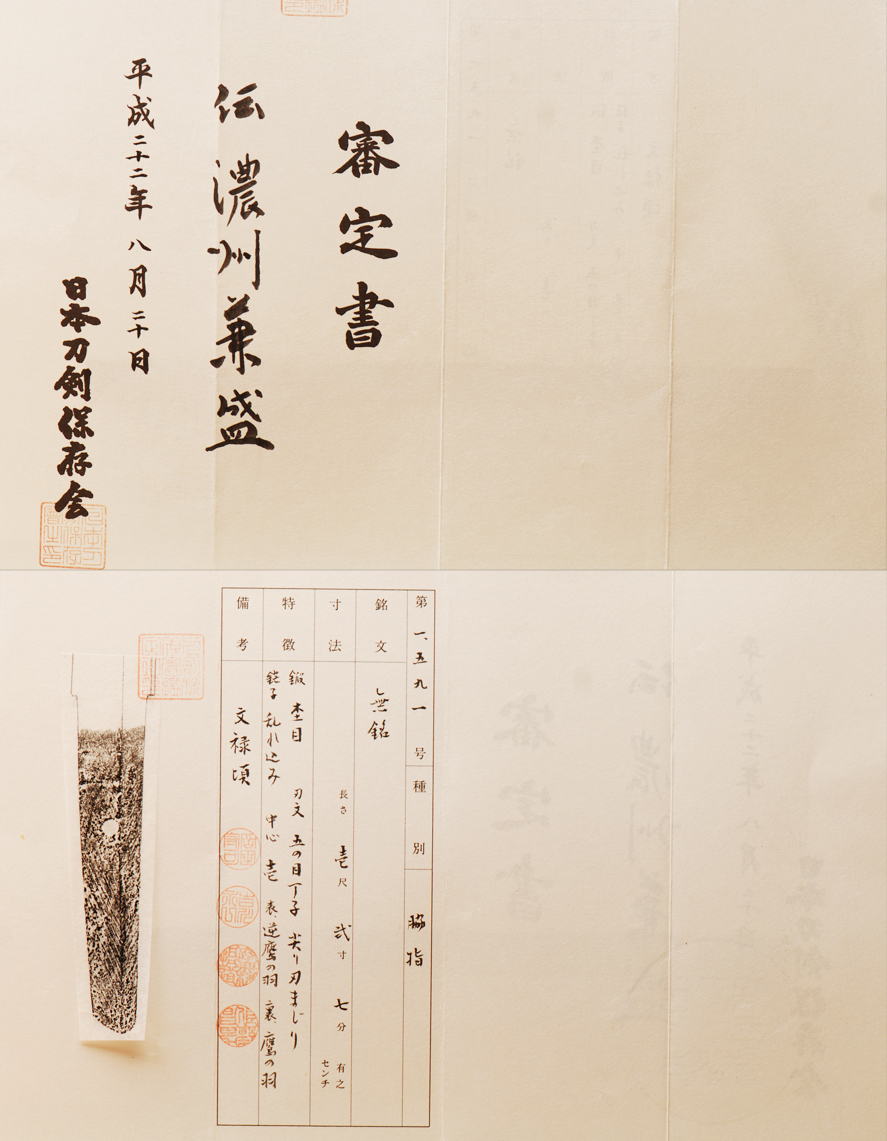 審定書
伝 濃州兼盛
平成二十二年八月二十日
日本刀剣保存会
第一、五九一号 種別 脇指
銘文 無銘
寸法 長さ 壱尺 弐寸 七分 有之 センチ
特徴 鍛 杢目 刃文 五の目丁子 尖り刃まじり
鋩子 乱れ込み 中心 壱 表、逆鷹の羽 裏、鷹の羽
備考 文禄頃